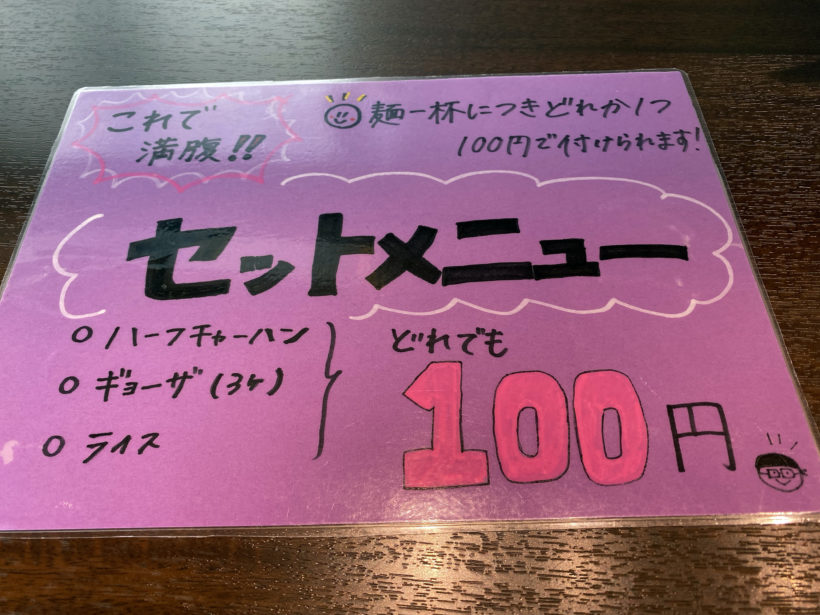 これで
満腹!!
麺一杯につきどれか1つ
100円で付けられます!
セットメニュー
○ ハーフチャーハン
○ ギョーザ(3ヶ)
○ ライス
どれでも
100円